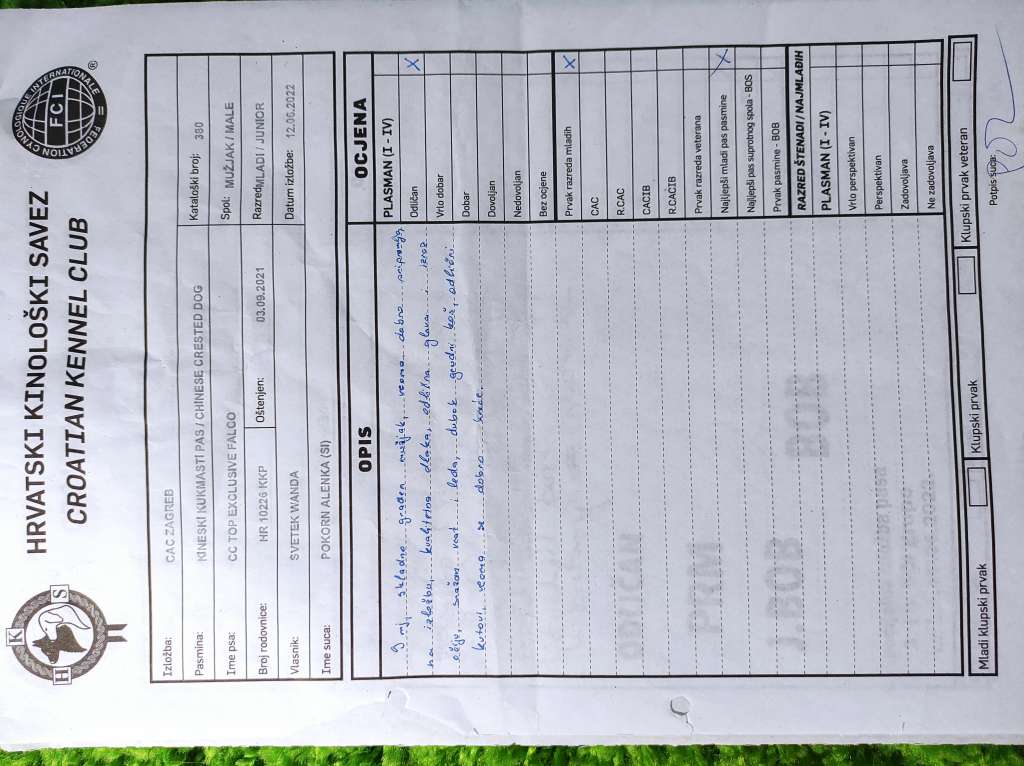 HRVATSKI KINOLOŠKI SAVEZ
CROATIAN KENNEL CLUB
H K S
FEDERATION CYNOLOGIQUE INTERNATIONALE
FCI
®
Izložba: CAC ZAGREB
Pasmina: KINESKI KUKMASTI PAS / CHINESE CRESTED DOG Kataloški broj: 380
Ime psa: CC TOP EXCLUSIVE FALCO Spol: MUŽJAK / MALE
Broj rodovnice: HR 10226 KKP Oštenjen: 03.09.2021 Razred: MLADI / JUNIOR
Vlasnik: SVETEK WANDA Datum izložbe: 12.06.2022
Ime suca: POKORN ALENKA (SI)
OPIS
9 mj, skladno građen mužjak, veoma dobro pripremljen
na izložbu, kvalitetna dlaka, odlična glava i izraz
očiju, snažan vrat i leđa, dubok grudni koš, odlični
kutovi, veoma se dobro kreće.
OCJENA
PLASMAN (I - IV)
Odličan X
Vrlo dobar
Dobar
Dovoljan
Nedovoljan
Bez ocjene
Prvak razreda mladih X
CAC
R.CAC
CACIB
R.CACIB
Prvak razreda veterana
Najljepši mladi pas pasmine X
Najljepši pas suprotnog spola - BOS
Prvak pasmine - BOB
RAZRED ŠTENADI / NAJMLAĐIH
PLASMAN (I - IV)
Vrlo perspektivan
Perspektivan
Zadovoljava
Ne zadovoljava
Mladi klupski prvak Klupski prvak Klupski prvak veteran
Potpis suca: